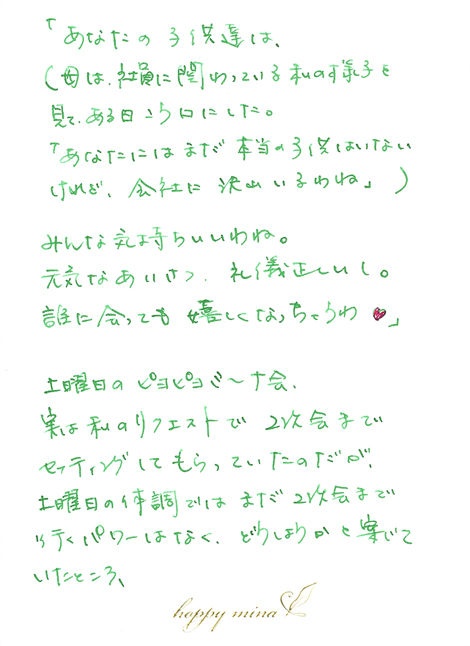 「あなたの子供達は、
(母は、社員に関わっている私の様子を
見て、ある日こう口にした。
「あなたにはまだ本当の子供はいない
けれど、会社に沢山いるわね」)
みんな気持ちいいわね。
元気なあいさつ、礼儀正しいし。
誰に会っても嬉しくなっちゃうわ♥」
土曜日のピヨピヨビ〜ナ会、
実は私のリクエストで2次会まで
セッティングしてもらっていたのだが、
土曜日の体調ではまだ2次会まで
行くパワーはなく、どうしようかと案じて
いたところ、
happy mina